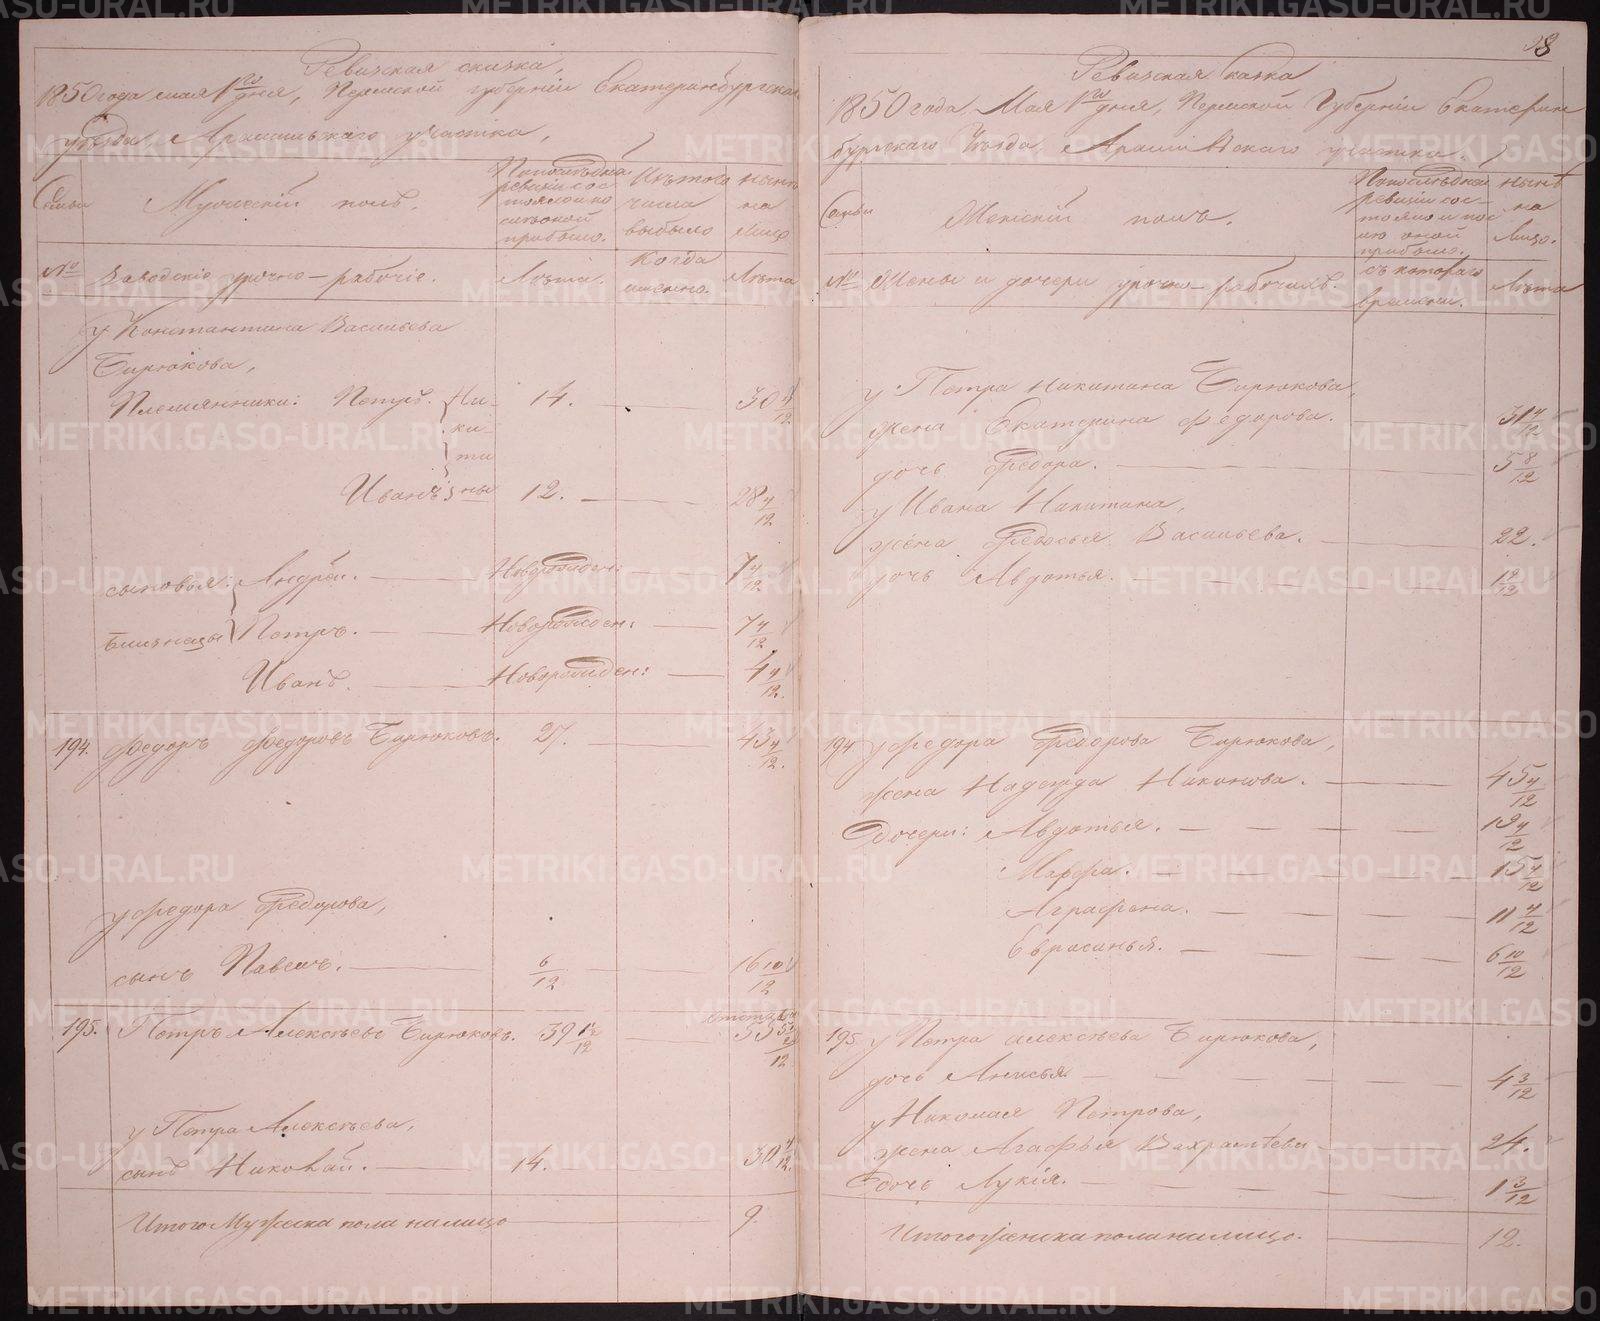 Ревизская сказка,
1850 года мая 1го дня, Пермской губернiи Екатеринбургскаго
уезда, Арамильскаго участка,
Семьи
Мужескiй полъ.
По последней ревизiи состояло и после оной прибыло.
Изъ того числа выбыло
ныне на лицо
№
Заводскiе урочно-рабочiе.
Лета.
Когда именно.
Лета
у Константина Васильева
Бирюкова,
Племянники: Петръ. Ни- 14. 30 4/12
ки-
ти
Иванъ ны 12. 28 4/12
сыновья: Андрей. Новорожден: 7 4/12
близнецы Петръ. Новорожден: 7 4/12
Иванъ. Новорожден: 4 4/12
194. Федоръ Федоровъ Бирюковъ. 27. 43 4/12
у Федора Федорова,
сынъ Павелъ. 6/12 16 10/12
195. Петръ Алексеевъ Бирюковъ. 39
у Петра Алексеева,
сынъ Николай. 14. 30 4/12
Итого Мужеска пола на лицо 9.
98
Ревизская сказка
1850 года Мая 1го дня, Пермской Губернiи Екатерин
бургскаго Уезда, Арамильскаго участка.
Семьи
Женскiй полъ.
По последней ревизiи состояло и после оной прибыло.
ныне на лицо.
№
Жены и дочери урочно-рабочихъ.
съ котораго времени.
Лета
у Петра Никитина Бирюкова,
жена Екатерина Федорова. 31 4/12
дочь Федора. 5 8/12
у Ивана Никитина,
жена Федосья Васильева. 22.
дочь Авдотья. 1
194 у Федора Федорова Бирюкова,
жена Надежда Никонова. 45 4/12
дочери: Авдотья. 19 4/12
Марфа. 15 4/12
Аграфена. 11 4/12
Евросинья. 6 10/12
195 у Петра Алексеева Бирюкова,
дочь Анисья. 4 3/12
у Николая Петрова,
жена Агафья Вахрамеева 24.
дочь Лукiя. 1 3/12
Итого женска пола на лицо. 12.
METRIKI.GASO-URAL.RU